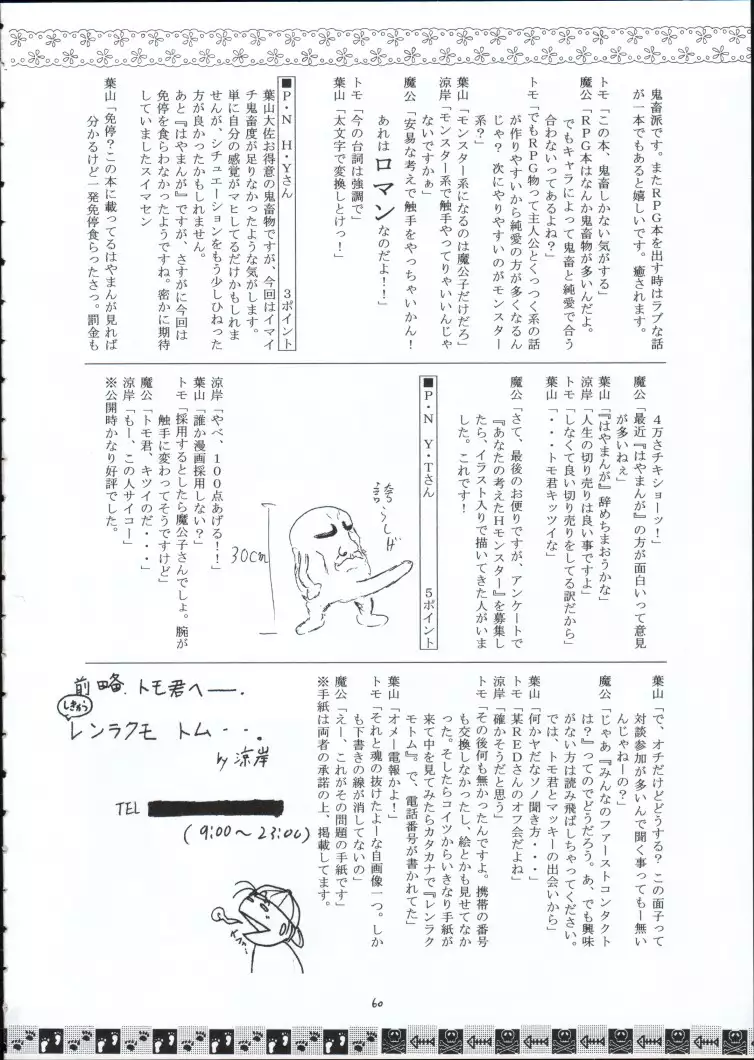 鬼畜派です。またRPG本を出す時はラブな話
が一本でもあると嬉しいです。癒されます。
トモ「この本、鬼畜しかない気がする」
魔公「RPG本はなんか鬼畜物が多いんだよ。
でもキャラによって鬼畜と純愛で合う
合わないってあるよね?」
トモ「でもRPG物って主人公とくっつく系の話
が作りやすいから純愛の方が多くなるん
じゃ?次にやりやすいのがモンスター
系?」
葉山「モンスター系になるのは魔公子だけだろ」
涼岸「モンスター系で触手やってりゃいいんじゃ
ないですかぁ」
魔公「安易な考えで触手をやっちゃいかん!
あれはロマンなのだよ!!」
トモ「今の台詞は強調で」
葉山「太文字で変換しとけっ!」
■P・N H・Yさん 3ポイント
葉山大佐お得意の鬼畜物ですが、今回はイマイ
チ鬼畜度が足りなかったような気がします。
単に自分の感覚がマヒしてるだけかもしれま
せんが、シチュエーションをもう少しひねった
方が良かったかもしれません。
あと『はやまんが』ですが、さすがに今回は
免停を食らわなかったようですね。密かに期待
していましたスイマセン
葉山「免停?この本に載ってるはやまんが見れば
分かるけど一発免停食らったさっ。罰金も
4万さチキショーッ!」
魔公「最近『はやまんが』の方が面白いって意見
が多いねぇ」
葉山「『はやまんが』辞めちまおうかな」
涼岸「人生の切り売りは良い事ですよ」
トモ「しなくて良い切り売りをしてる訳だから」
葉山「・・・トモ君キッツイな」
魔公「さて、最後のお便りですが、アンケートで
『あなたの考えたHモンスター』を募集し
たら、イラスト入りで描いてきた人がいま
した。これです!
■P・N Y・Tさん 5ポイント
誇らしげ
30cm
涼岸「やべ、100点あげる!!」
葉山「誰か漫画採用しない?」
トモ「採用するとしたら魔公子さんでしょ。腕が
触手に変わってそうですけど」
魔公「トモ君、キツイのだ・・・」
涼岸「もー、この人サイコー」
※公開時かなり好評でした。
葉山「で、オチだけどどうする?この面子って
対談参加が多いんで聞く事ってもー無い
んじゃねーの?」
魔公「じゃあ『みんなのファーストコンタクト
は?』ってのでどうだろう。あ、でも興味
がない方は読み飛ばしちゃってください。
では、トモ君とマッキーの出会いから」
葉山「何かヤだなソノ聞き方・・・」
トモ「某REDさんのオフ会だよね」
涼岸「確かそうだと思う」
トモ「その後何も無かったんですよ。携帯の番号
も交換しなかったし、絵とかも見せてなか
った。そしたらコイツからいきなり手紙が
来て中を見てみたらカタカナで『レンラク
モトム』。で、電話番号が書かれてた」
葉山「オメー電報かよ!」
トモ「それと魂の抜けたよーな自画像一つ。しか
も下書きの線が消してないの」
魔公「えー、これがその問題の手紙です」
※手紙は両者の承諾の上、掲載してます。
前略、トモ君へ――.
しきゅう
レンラクモ トム・・・。
by 涼岸
TEL
(9:00〜23:00)
60